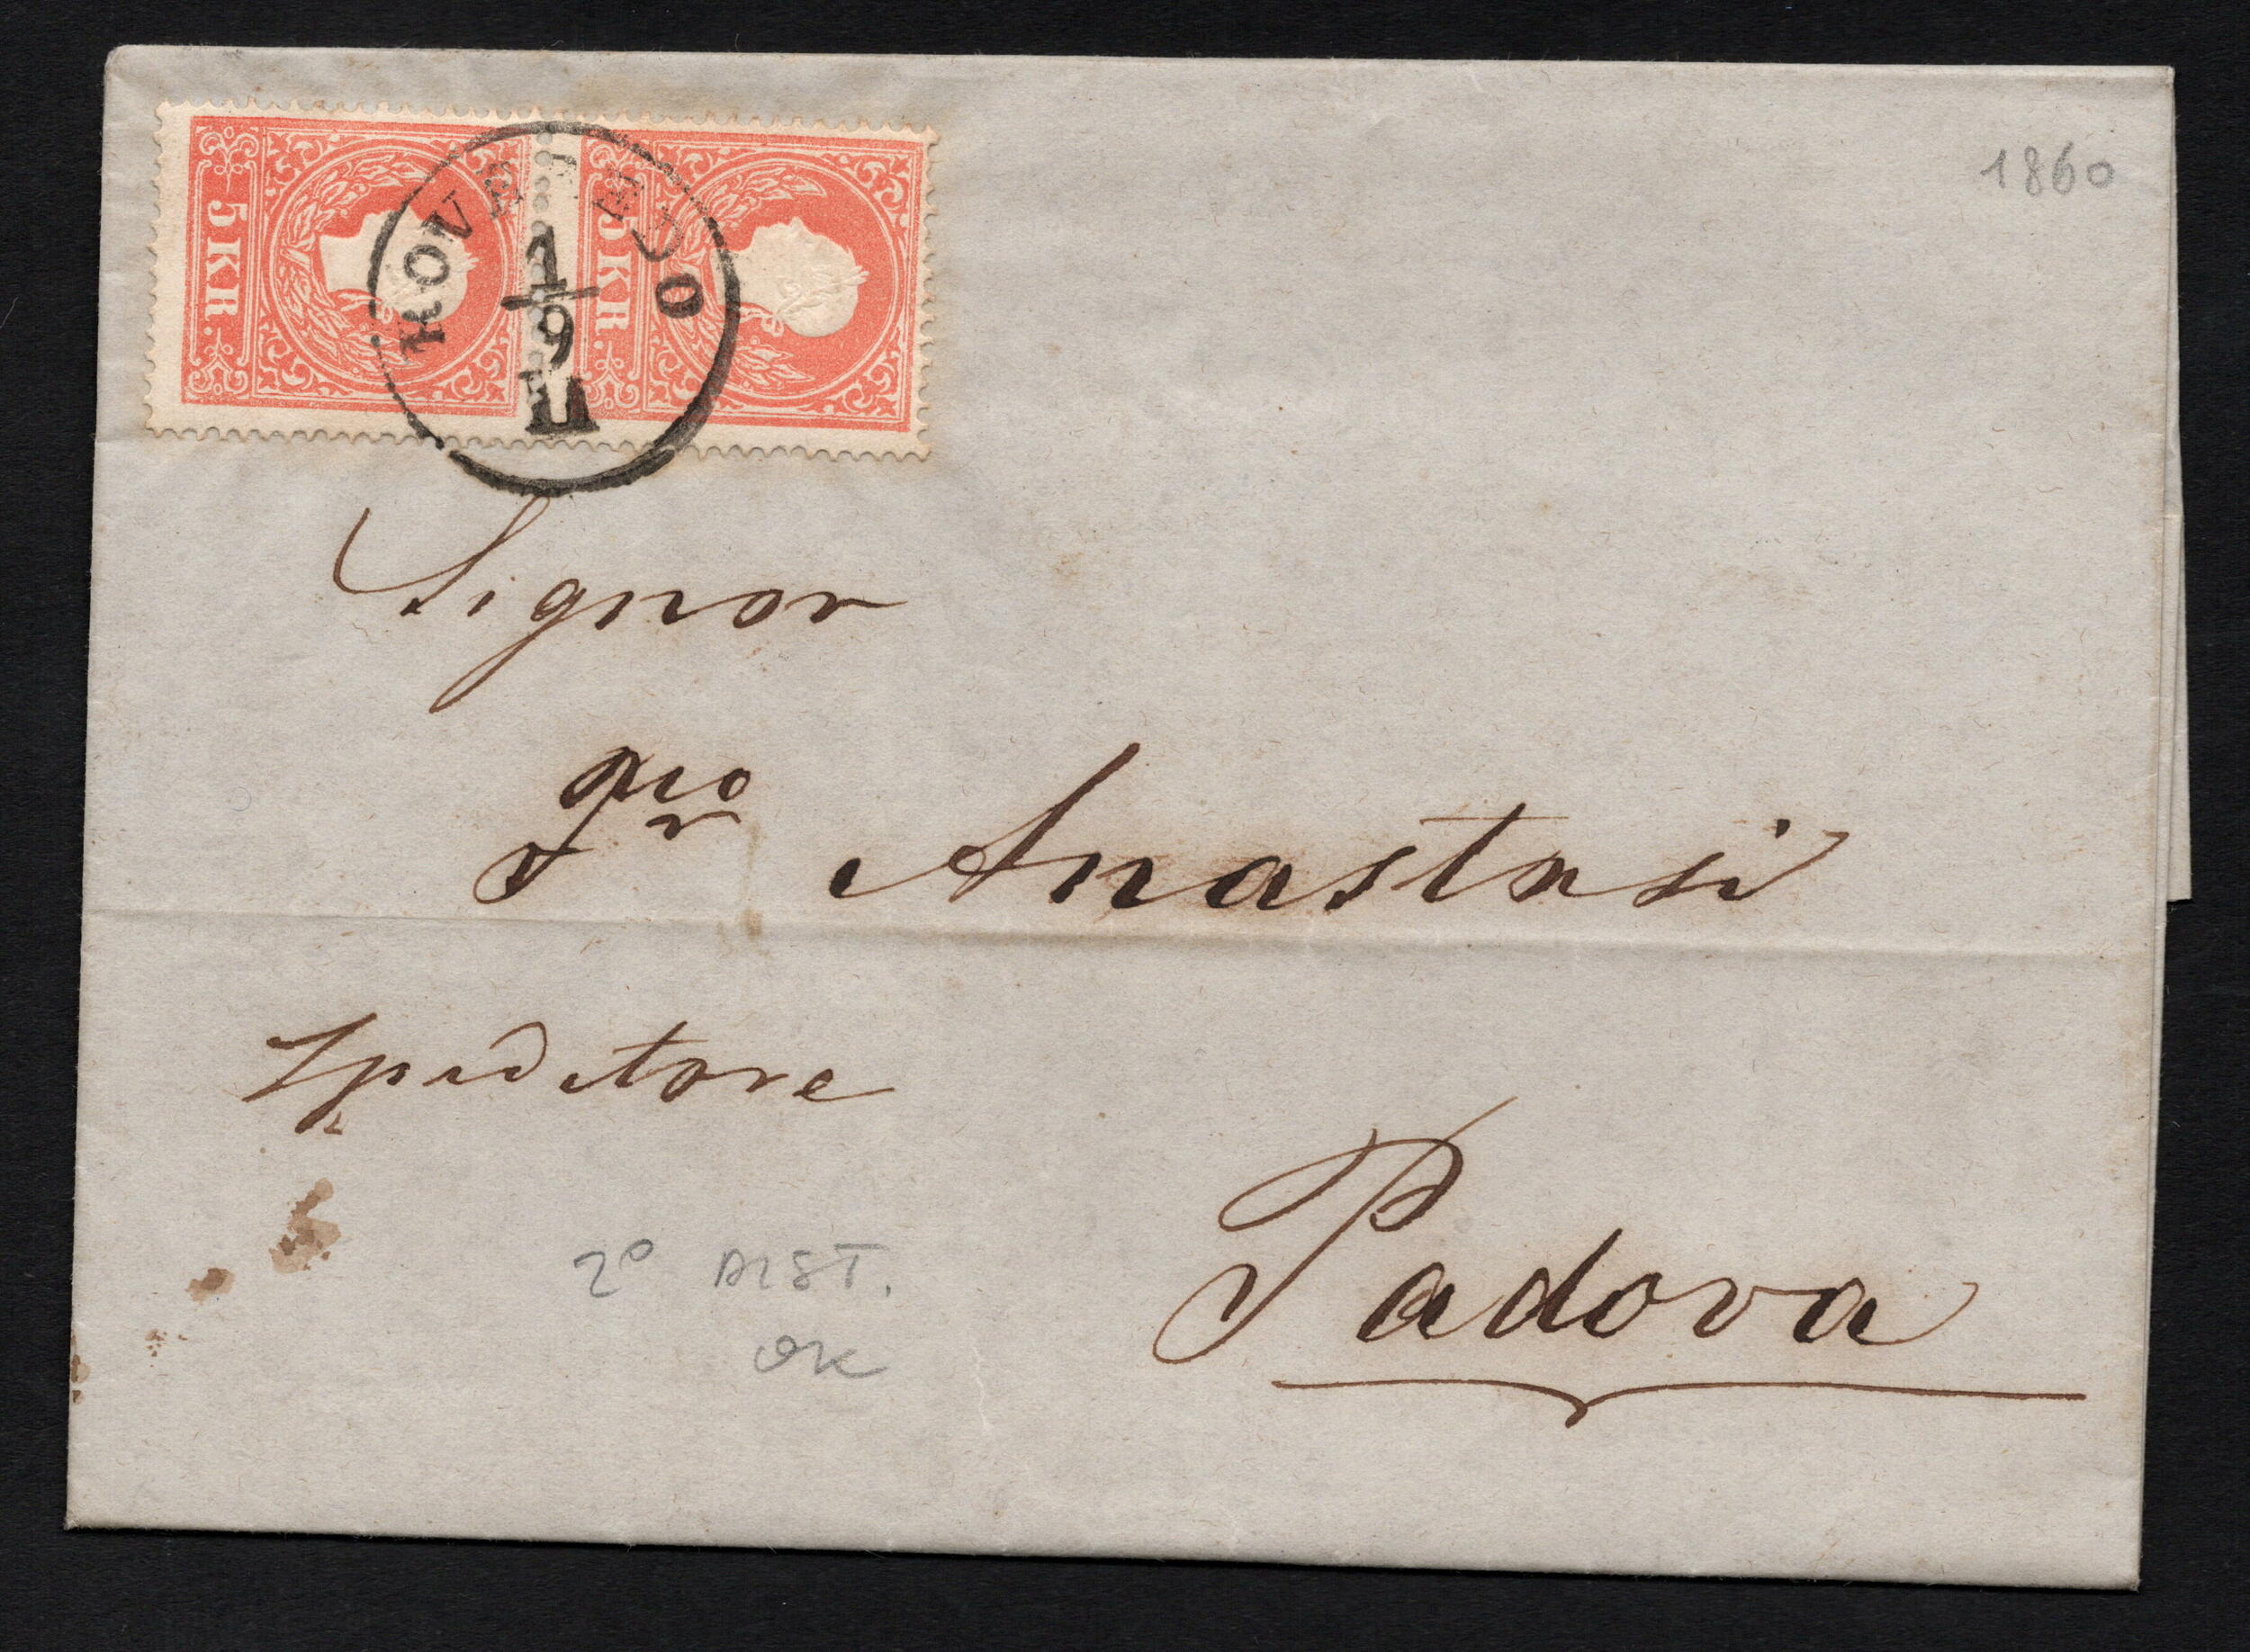 1860
5 KR.
5 KR.
ROVEREDO
1
9
II
Signor
Gio Anastasi
Speditore
Padova
2° DIST.
OK